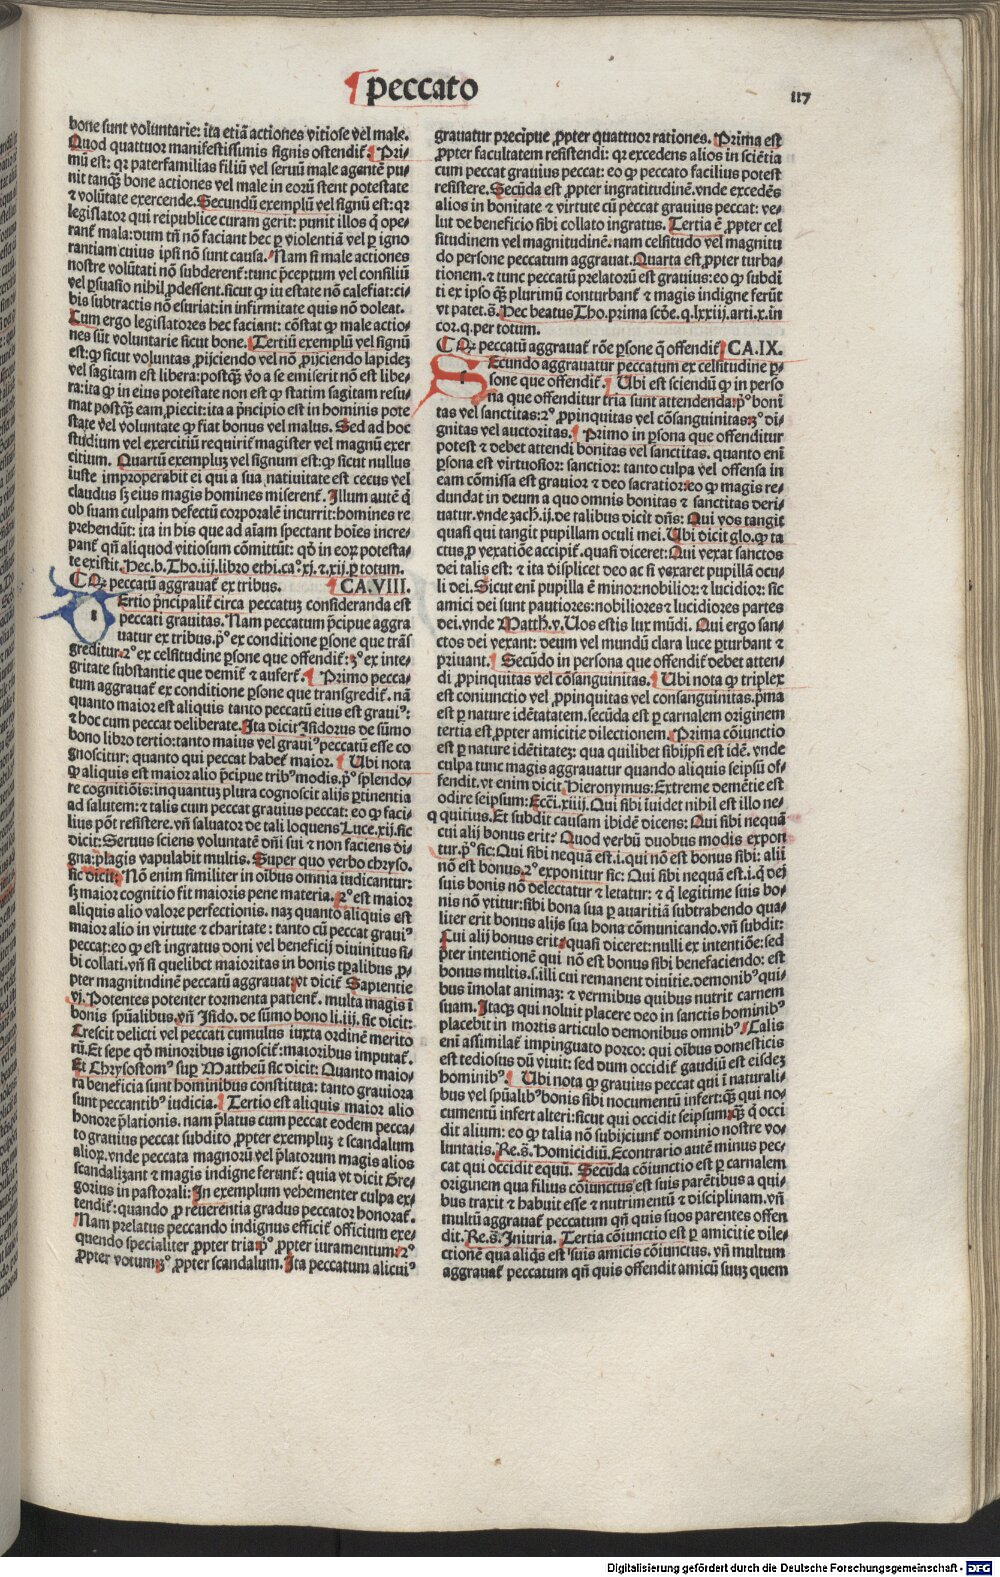 peccato
117
bone sunt voluntarie: ita etiā actiones vitiose vel male.
Quod quattuor manifestissimis signis ostendit᷑. Pri⸗
mū est: qꝛ paterfamilias filiū vel seruū male agentē pu⸗
nit tanqꝫ bone actiones vel male in eorū stent potestate
⁊ volūtate exercende. Secundū exemplū vel signū est: qꝛ
legislator qui reipublice curam gerit: punit illos q̄ ope⸗
rant᷑ mala: dum tn̄ nō faciant hec ꝑ violentiā vel ꝑ igno
rantiam cuius ipsi nō sunt causa. Nam si male actiones
nostre volūtati nō subderent᷑: tunc p̄ceptum vel consiliū
vel ꝑsuasio nihil ꝓdessent. sicut ꝙ iu estate nō calefiat: ci⸗
bis subtractis nō esuriat: in infirmitate quis nō doleat.
Cum ergo legislatores hec faciant: cōstat ꝙ male actio⸗
nes sūt voluntarie sicut bone. Tertiū exemplū vel signū
est: ꝙ sicut voluntas ꝓijciendo vel nō ꝓijciendo lapideꝫ
vel sagitam est libera: postqꝫ v̄o a se emiserit nō est libe⸗
ra: ita ꝙ in eius potestate non est ꝙ statim sagitam resu⸗
mat postqꝫ eam ꝓiecit: ita a p̄ncipio est in hominis pote
state vel voluntate ꝙ fiat bonus vel malus. Sed ad hoc
studium vel exercitiū requirit᷑ magister vel magnū exer
citium. Quartū exempluꝫ vel signum est: ꝙ sicut nullus
iuste improperabit ei qui a sua natiuitate est cecus vel
claudus sꝫ eius magis homines miserent᷑. Illum autē q̄
ob suam culpam defectū corporalē incurrit: homines re
prehendūt: ita in his que ad aīam spectant hoīes incre⸗
pant᷑ qn̄ aliquod vitiosum cōmittūt: qd̄ in eoꝝ potesta⸗
te existit. Hec. b. Tho. iij. libro ethi. ca⁰. xj. ⁊. xij. ꝑ totum.
⸿ Qꝛ peccatū aggrauat᷑ ex tribus. CA. VIII.
Ertio p̄ncipalit᷑ circa peccatuꝫ consideranda est
peccati grauitas. Nam peccatum p̄cipue aggra
uatur ex tribus. p⁰ ex conditione ꝑsone que trās
greditur. 2⁰ ex celsitudine ꝑsone que offendit᷑: 3⁰ ex inte⸗
gritate substantie que demit᷑ ⁊ aufert᷑. Primo pecca⸗
tum aggrauat᷑ ex conditione ꝑsone que transgredit᷑. nā
quanto maior est aliquis tanto peccatū eius est grauiꝰ:
⁊ hoc cum peccat deliberate. Ita dicit Isidorus de sūmo
bono libro tertio: tanto maius vel grauiꝰ peccatū esse co
gnoscitur: quanto qui peccat habet᷑ maior. Ubi nota
ꝙ aliquis est maior alio p̄cipue tribꝰ modis. p⁰ splendo⸗
re cognitiōis: inquantuꝫ plura cognoscit alijs ꝑtinentia
ad salutem: ⁊ talis cum peccat grauius peccat: eo ꝙ faci⸗
lius pōt resistere. vn̄ saluator de tali loquens Luce. xij. sic
dicit: Seruus sciens voluntatē dn̄i sui ⁊ non faciens di⸗
gna: plagis vapulabit multis. Super quo verbo chryso.
sic dicit: Nō enim similiter in oībus omnia iudicantur:
sꝫ maior cognitio fit maioris pene materia. 2⁰ est maior
aliquis alio valore perfectionis. naꝫ quanto aliquis est
maior alio in virtute ⁊ charitate: tanto cū peccat grauiꝰ
peccat: eo ꝙ est ingratus doni vel beneficij diuinitus si⸗
bi collati. vn̄ si quelibct maioritas in bonis tꝑalibus ꝓ⸗
pter magnitndinem peccatū aggrauat: vt dicit᷑ Sapientie
vj. Potentes potenter tormenta patient᷑. multa magis ī
bonis spūalibus. vn̄ Isido. de sūmo bono li. iij. sic dicit:
Crescit delicti vel peccati cumulus iuxta ordinē merito
rū. Et sepe qd̄ minoribus ignoscit᷑: maioribus imputat᷑.
Et Chrysostomꝰ suꝑ Mattheū sic dicit: Quanto maio⸗
ra beneficia sunt hominibus constituta: tanto grauiora
sunt peccantibꝰ iudicia. Tertio est aliquis maior alio
honore p̄lationis. nam p̄latus cum peccat eodem pecca⸗
to grauius peccat subdito ꝓpter exempluꝫ ⁊ scandalum
alioꝝ. vnde peccata magnorū vel p̄latorum magis alios
scandalizant ⁊ magis indigne ferunt᷑: quia vt dicit Gre⸗
gorius in pastorali: In exemplum vehementer culpa ex⸗
tendit᷑: quando ꝓ reuerentia gradus peccator honorat᷑.
Nam prelatus peccando indignus efficit᷑ officium exe⸗
quendo specialiter ꝓpter tria: p⁰ ꝓpter iuramentum: 2⁰
ꝓpter votum: 3⁰ ꝓpter scandalum. Ita peccatum alicuiꝰ
grauatur precipue ꝓpter quattuor rationes. Prima est
ꝓpter facultatem resistendi: qꝛ excedens alios in sciētia
cum peccat grauius peccat: eo ꝙ peccato facilius potest
resistere. Secūda est ꝓpter ingratitudinē. vnde excedēs
alios in bonitate ⁊ virtute cū peccat grauius peccat: ve⸗
lut de beneficio sibi collato ingratus. Tertia ē ꝓpter cel
situdinem vel magnitudinē. nam celsitudo vel magnitu
do persone peccatum aggrauat. Quarta est ꝓpter turba⸗
tionem. ⁊ tunc peccatū prelatorū est grauius: eo ꝙ subdi
ti ex ipso qꝫ plurimū conturbant᷑ ⁊ magis indigne ferūt
vt patet. s̄. Hec beatus Tho. prima scd̄e. q. lxxiij. arti. x. in
cor. q. per totum.
⸿ Qꝛ peccatū aggrauat᷑ rōe ꝑsone q̄ offendit᷑. CA. IX.
Secundo aggrauatur peccatum ex celsitudine ꝑ⸗
sone que offendit᷑. Ubi est sciendū ꝙ in perso
na que offenditur tria sunt attendenda: p⁰ boni
tas vel sanctitas: 2⁰ ꝓpinquitas vel cōsanguinitas: 3⁰ di⸗
gnitas vel auctoritas. Primo in ꝑsona que offenditur
potest ⁊ debet attendi bonitas vel sanctitas. quanto eni
ꝑsona est virtuosior: sanctior: tanto culpa vel offensa in
eam cōmissa est grauior ⁊ deo sacratior: eo ꝙ magis re⸗
dundat in deum a quo omnis bonitas ⁊ sanctitas deri⸗
uatur. vnde zach. ij. de talibus dicit dn̄s: Qui vos tangit
quasi qui tangit pupillam oculi mei. Ubi dicit glo. ꝙ ta
ctus ꝓ vexatiōe accipit᷑. quasi diceret: Qui vexat sanctos
dei talis est: ⁊ ita displicet deo ac si vexaret pupillā ocu⸗
li dei. Sicut eni pupilla ē minor: nobilior: ⁊ lucidior: sic
amici dei sunt pautiores: nobiliores ⁊ lucidiores partes
dei. vnde Matth. v. Uos estis lux mūdi. Qui ergo san⸗
ctos dei vexant: deum vel mundū clara luce ꝑturbant ⁊
priuant. Secūdo in persona que offendit᷑ debet atten⸗
di ꝓpinquitas vel cōsanguinitas. Ubi nota ꝙ triplex
est coniunctio vel ꝓpinquitas vel consanguinitas. p̄ma
est ꝑ nature idētatatem. secūda est ꝑ carnalem originem
tertia est ꝓpter amicitie dilectionem. Prima cōiunctio
est ꝑ nature idētitateꝫ: qua quilibet sibijpsi est idē. vnde
culpa tunc magis aggrauatur quando aliquis seipsū of⸗
fendit. vt enim dicit Hieronymus: Extreme demētie est
odire seipsum: Ecci. xiiij. Qui sibi īuidet nihil est illo ne⸗
q quitius. Et subdit causam ibidē dicens: Qui sibi nequā
cui alij bonus erit? Quod verbū duobus modis expon
tur. p⁰ sic: Qui sibi nequā est. i. qui nō est bonus sibi: alij
nō est bonus. 2⁰ exponitur sic: Qui sibi nequā est. i. q̄ de
suis bonis nō delectatur ⁊ letatur: ⁊ q̄ legitime suis bo⸗
nis nō vtitur: sibi bona sua ꝑ auaritiā subtrahendo qua⸗
liter erit bonus alijs sua bona cōmunicando. vn̄ subdit:
Cui alij bonus erit. quasi diceret: nulli ex intentiōe: sed
p̄ter intentionē qui nō est bonus sibi benefaciendo: est
bonus multis. s. illi cui remanent diuitie. demonibꝰ qui⸗
bus īmolat animaꝫ: ⁊ vermibus quibus nutrit carnem
suam. Itaqꝫ qui noluit placere deo in sanctis hominibꝰ
placebit in mortis articulo demonibus omnibꝰ. Talis
eni assimilat᷑ impinguato porco: qui oībus domesticis
est tediosus dū viuit: sed dum occidit᷑ gaudiū est eisdeꝫ
hominibꝰ. Ubi nota ꝙ grauius peccat qui ī naturali⸗
bus vel spūalibꝰ bonis sibi nocumentū infert: qꝫ qui no⸗
cumentū infert alteri: sicut qui occidit seipsum: qꝫ q̄ occi
dit alium: eo ꝙ talia nō subijciunt᷑ dominio nostre vo⸗
luntatis. Re. s̄. Homicidiū. Econtrario autē minus pec⸗
cat qui occidit equū. Secūda cōiunctio est ꝑ carnalem
originem qua filius cōiunctus est suis parētibus a qui⸗
bus traxit ⁊ habuit esse ⁊ nutrimentū ⁊ disciplinam. vn̄
multū aggrauat᷑ peccatum qn̄ quis suos parentes offen
dit. Re. s̄. Iniuria. Tertia cōiunctio est ꝑ amicitie dile⸗
ctionē qua aliqͥs est suis amicis cōiunctus. vn̄ multum
aggrauat᷑ peccatum qn̄ quis offendit amicū suuꝫ quem
Digitalisierung gefördert durch die Deutsche Forschungsgemeinschaft - DFG